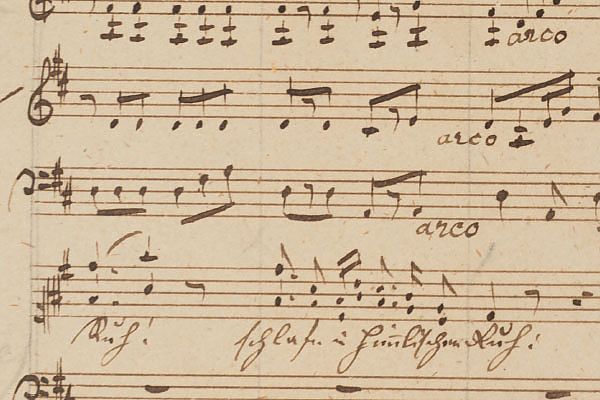 arco
arco
arco
Ruh! schlafe in himlischer Ruh!